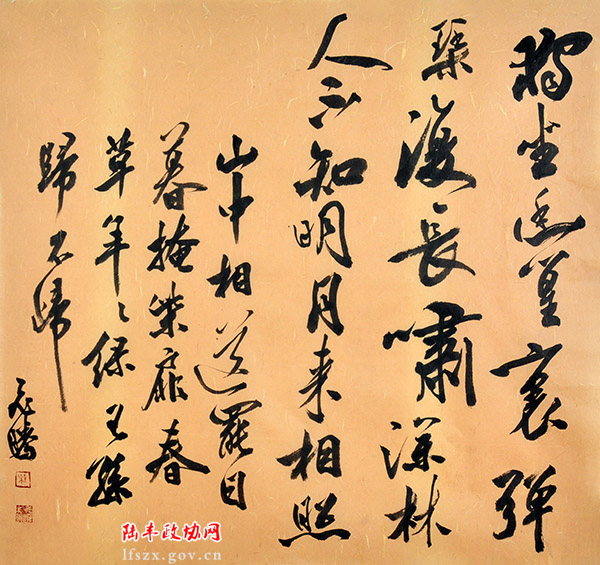 獨坐幽篁裏弹
琴復長嘯深林
人不知明月来相照
山中相送罷日
暮掩柴扉春
草年々綠王孫
歸不歸
陆丰政协网
lfszx.gov.cn